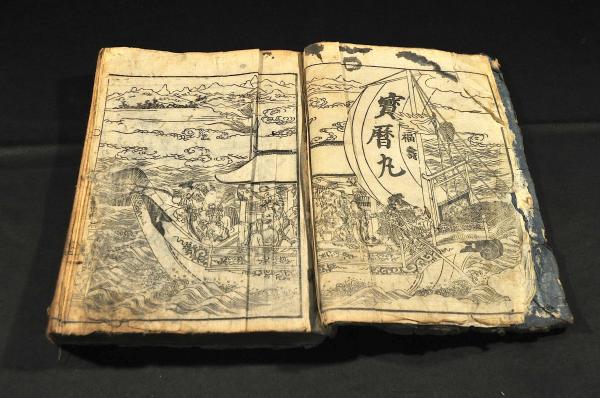 寶暦丸
福壽